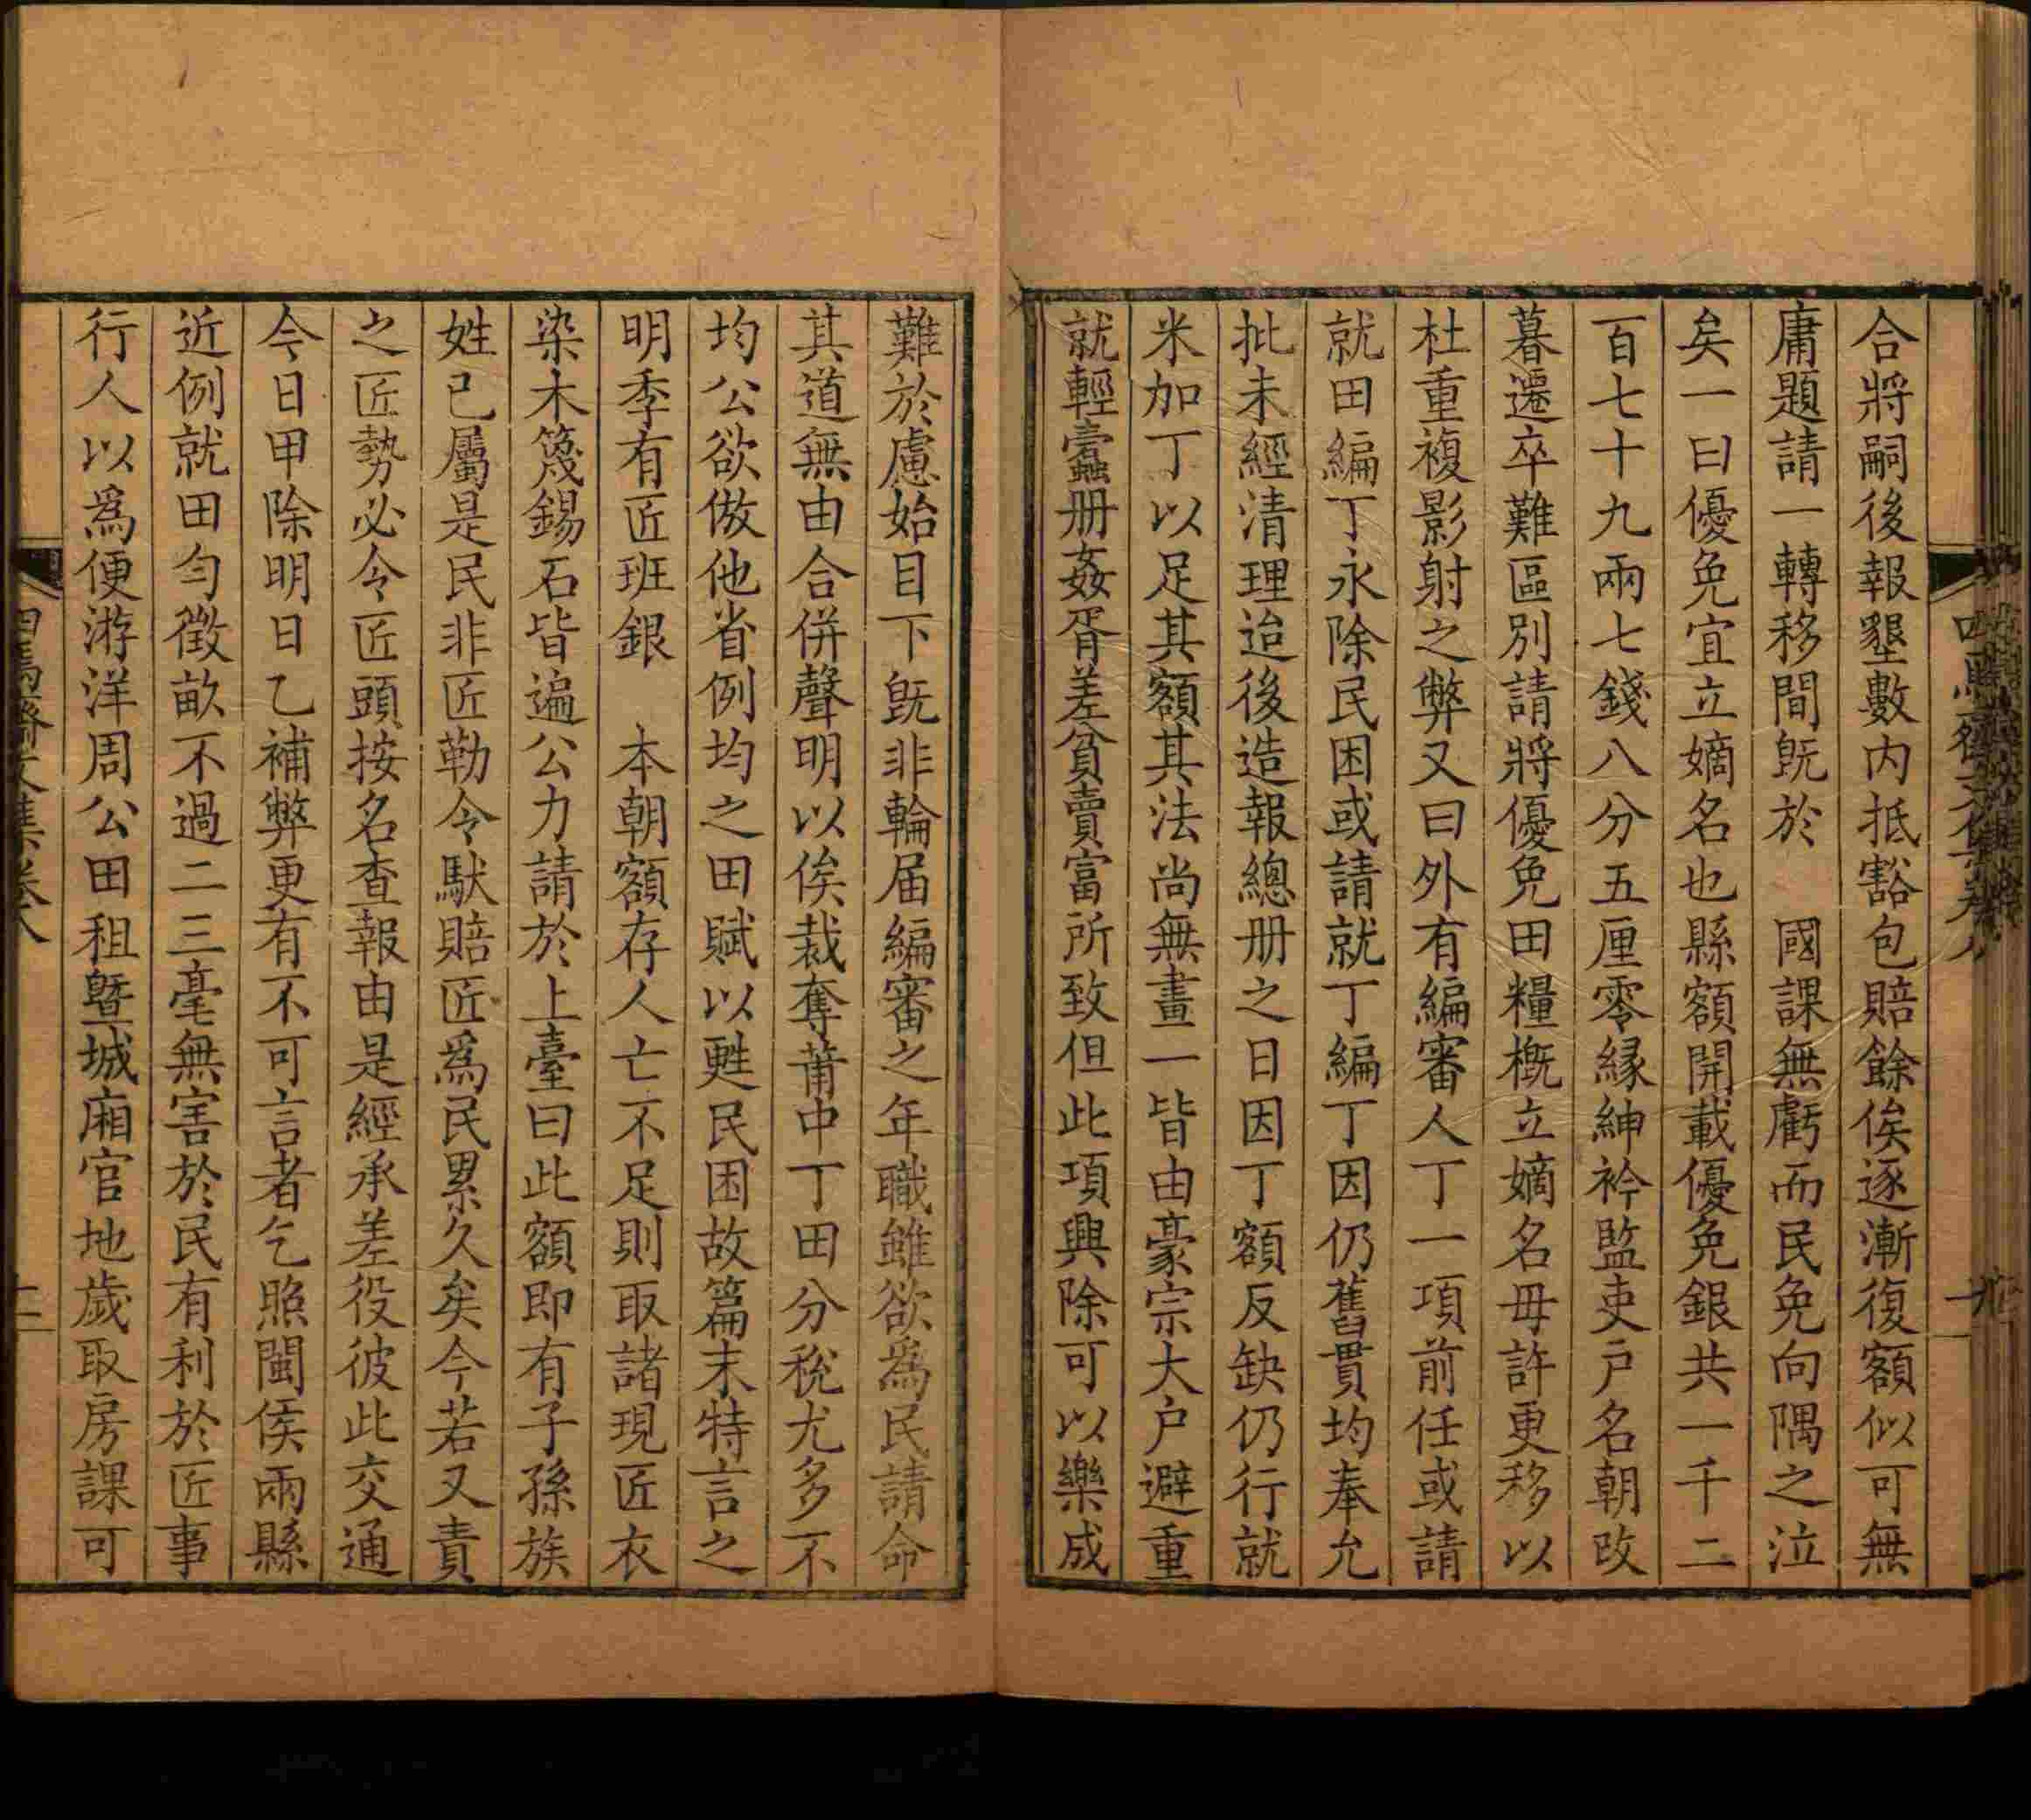 合將嗣後報墾數内抵豁包賠餘俟逐漸復額似可無
庸題請一轉移間旣於　國課無虧而民免向隅之泣
矣一曰優免宜立嫡名也縣額開載優免銀共一千二
百七十九兩七錢八分五厘零緣紳衿監吏戸名朝改
暮遷卒難區別請將優免田糧概立嫡名毋許更移以
杜重複影射之弊又曰外有編審人丁一項前任或請
就田編丁永除民困或請就丁編丁因仍舊貫均奉允
批未經清理迨後造報總册之日因丁額反缺仍行就
米加丁以足其額其法尚無畫一皆由豪宗大户避重
就輕蠹册姦胥差貧賣富所致但此項興除可以樂成
難於慮始目下旣非輪届編審之年職雖欲爲民請命
其道無由合併聲明以俟裁奪莆中丁田分稅尤多不
均公欲倣他省例均之田賦以甦民困故篇末特言之
明季有匠班銀　本朝額存人亡不足則取諸現匠衣
染木篾錫石皆遍公力請於上臺曰此額即有子孫族
姓已屬是民非匠勒令馱賠匠爲民累久矣今若又責
之匠勢必令匠頭按名查報由是經承差役彼此交通
今日甲除明日乙補弊更有不可言者乞照閩侯兩縣
近例就田勻徵畝不過二三毫無害於民有利於匠事
行人以爲便游洋周公田租曁城廂官地歲取房課可